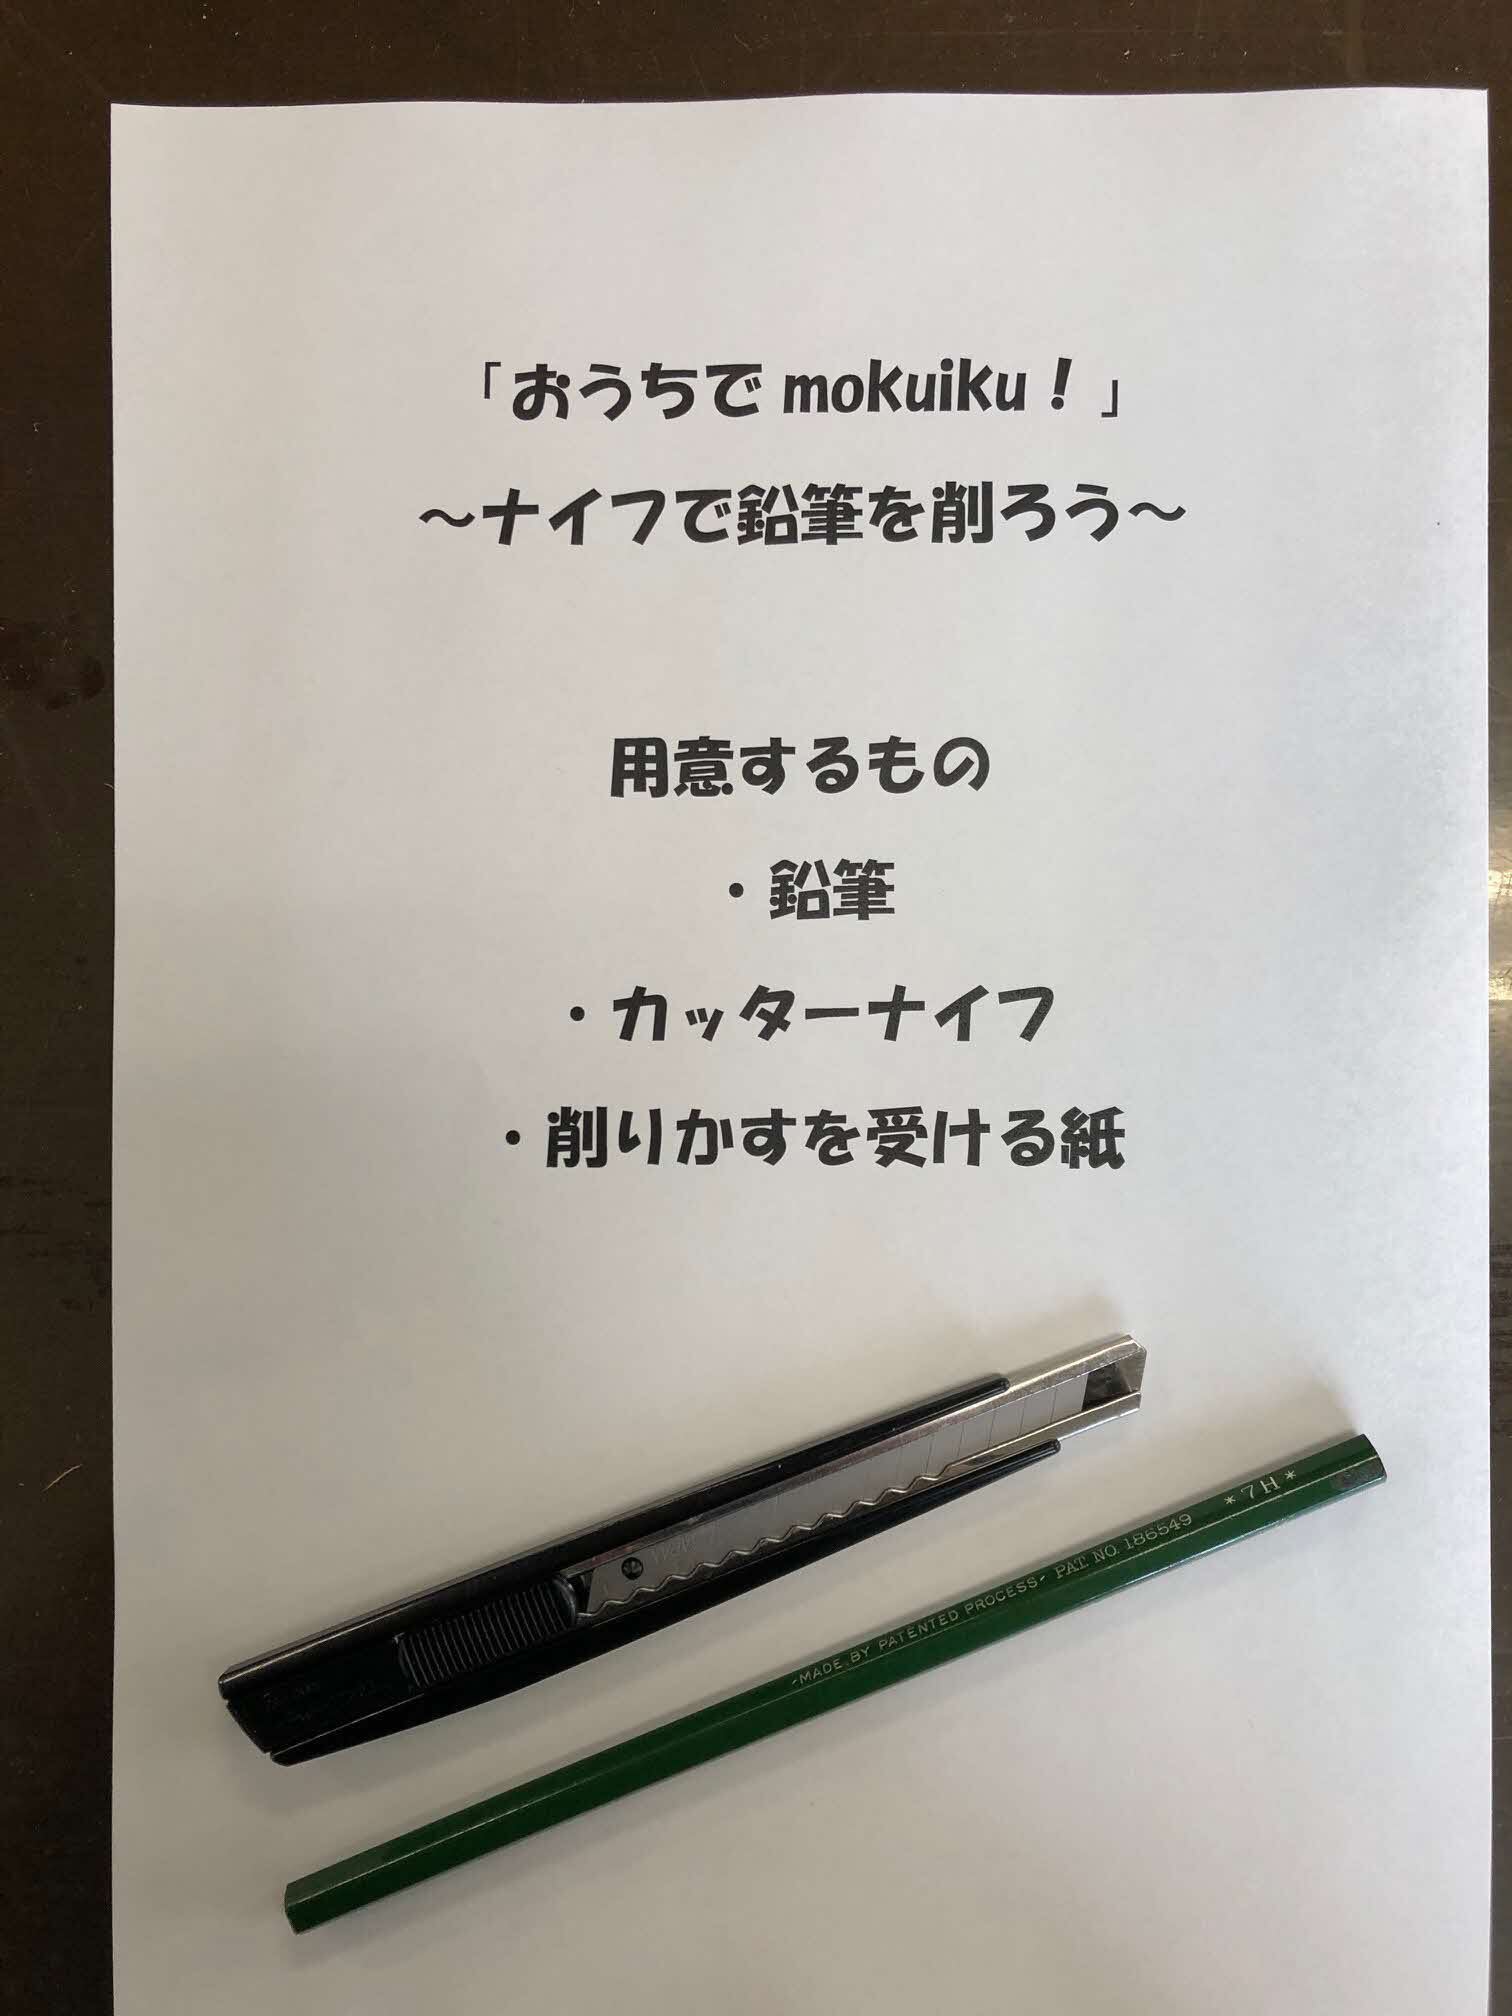 「おうちで mokuiku！」
～ナイフで鉛筆を削ろう～
用意するもの
・鉛筆
・カッターナイフ
・削りかすを受ける紙
-MADE BY PATENTED PROCESS- PAT. NO. 186549 *7H*